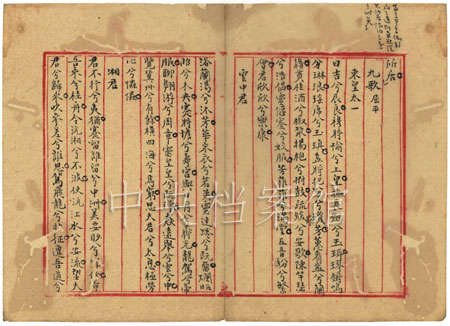 所居
九歌 屈平
東皇太一
日吉兮辰良穆將愉兮上皇撫長劍兮玉珥璆鏘鳴
兮琳琅瑤席兮玉瑱盍將把兮瓊芳蕙肴蒸兮蘭
藉奠桂酒兮椒漿揚枹兮拊鼓疏緩兮安歌陳竽瑟
兮浩倡靈偃蹇兮姣服芳菲菲兮滿堂五音紛兮繁
會君欣欣兮樂康
雲中君
浴蘭湯兮沐芳華采衣兮若英靈連蜷兮既留爛昭
昭兮未央蹇將憺兮壽宮與日月兮齊光龍駕兮帝
服聊翱游兮周章靈皇皇兮既降猋遠舉兮雲中
覽冀州兮有餘橫四海兮焉窮思夫君兮太息極勞
心兮忡忡
湘君
君不行兮夷猶蹇誰留兮中洲美要眇兮宜修沛
吾乘兮桂舟令沅湘兮不波使江水兮安流望夫
君兮歸來吹參差兮誰思駕飛龍兮北征邅吾道兮
中國檔案